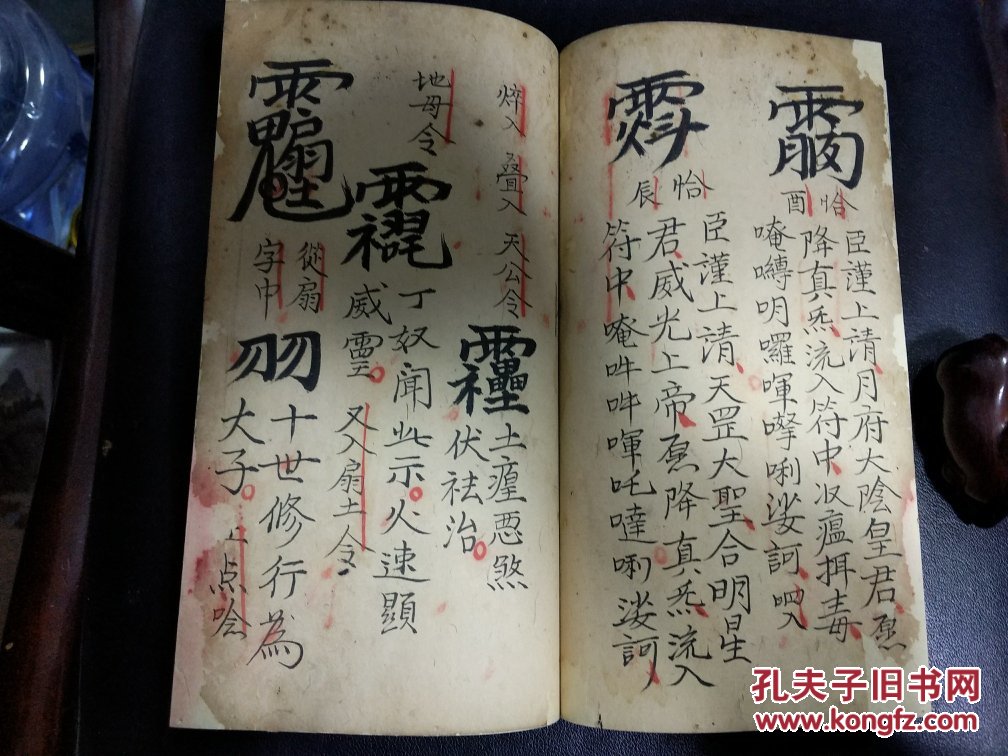 恰酉
臣謹上請月府大陰皇君
降真炁流入符中收瘟摂毒
唵嚩明囉㖇㘄唎娑訶
恰辰
臣謹上請天罡大聖合明星
君威光上帝降真炁流入
符中唵吽吽㖇吒噠唎娑訶
焠入 叠入 天公令
土瘟悪煞
伏祛治
地母令
丁奴聞此示火速顯
威靈
又入扇土令
從扇
字中
十世修行為
大子
上点唫
孔夫子旧书网
www.kongfz.com